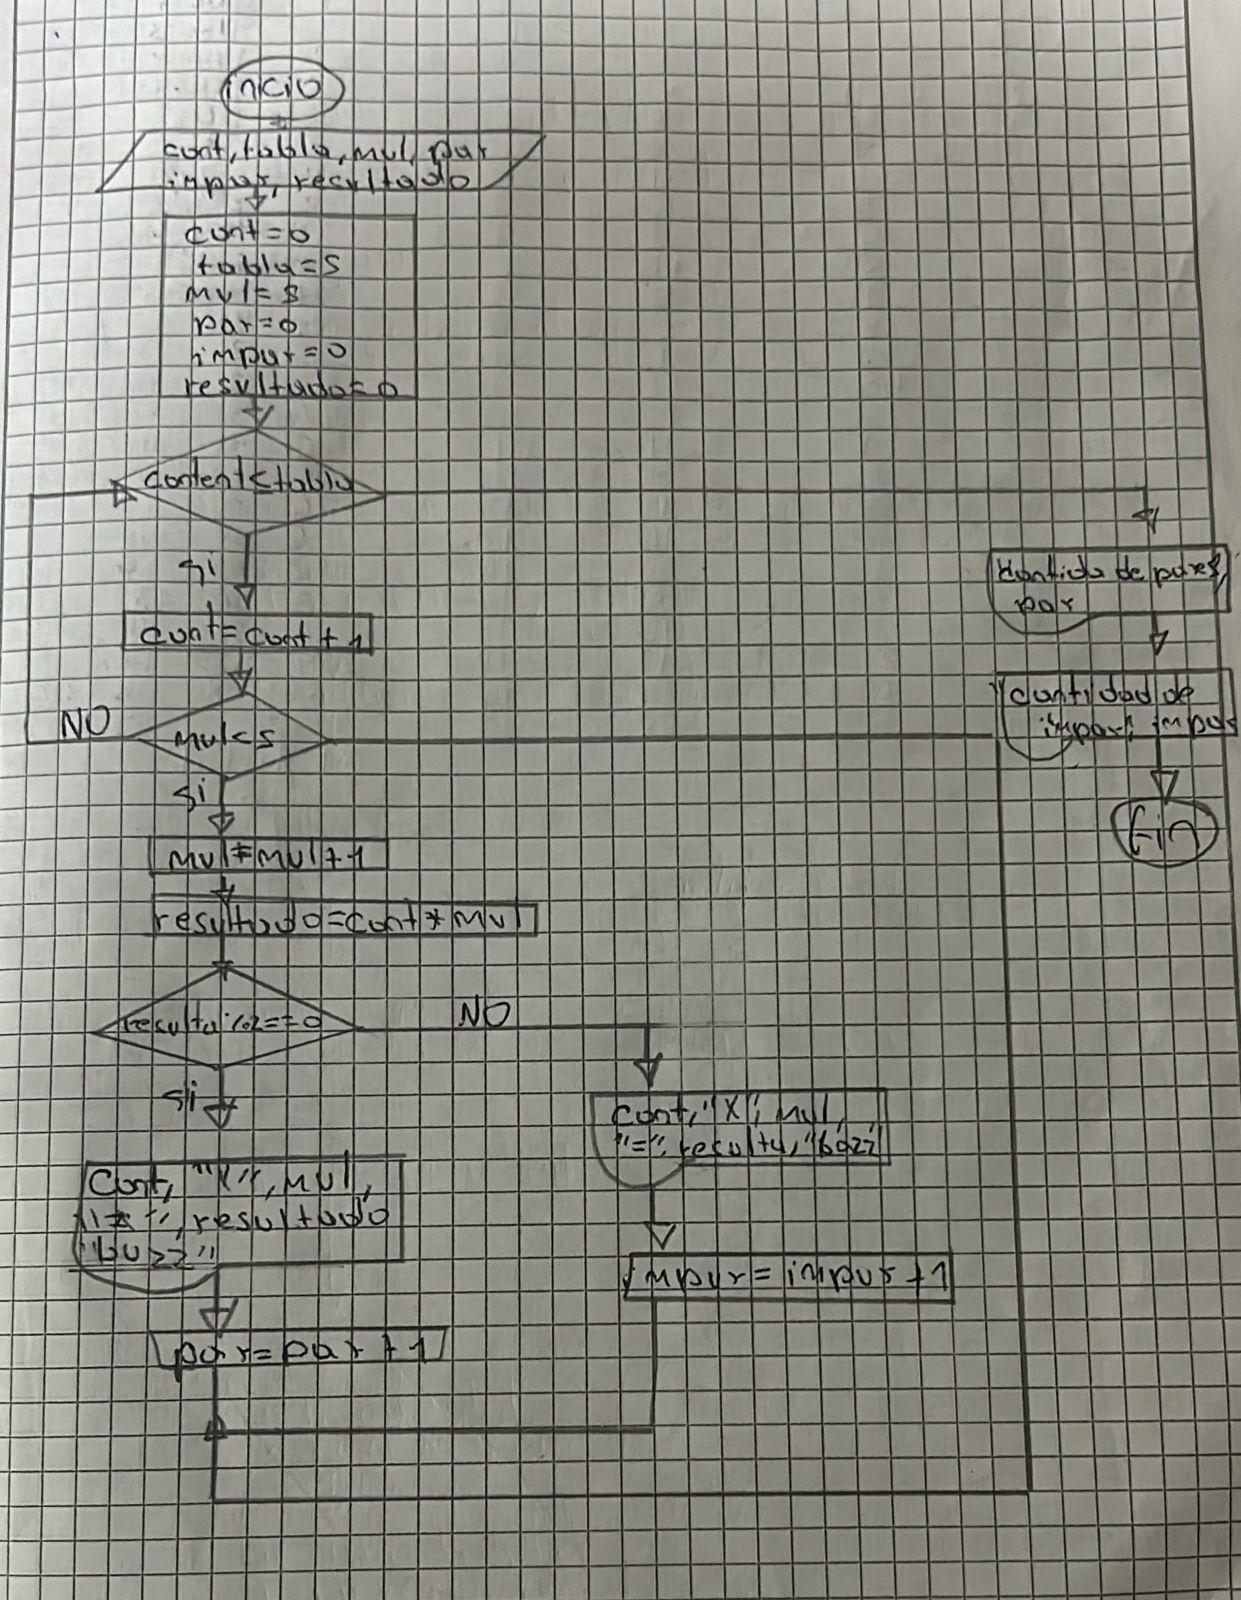 inicio
cont, tabla, mul, par
impar, resultado
cont=0
tabla=5
mul=
par=0
impar=0
resultado=0
≤tabla
si
cont=cont+1
NO
mul<5
si
mul=mul+1
resultado=cont*mul
%2==0
NO
si
cont, "X", mul,
"=", "bazz"
Cont, "X", mul,
"=", resultado
"buzz"
impar=impar+1
par=par+1
de pares,
par
cantidad de
impar,
fin